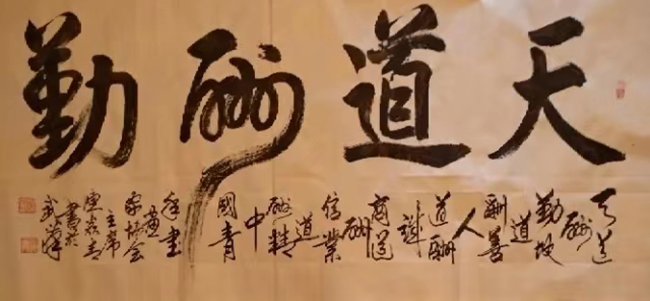 天道酬勤
天道
酬
勤地
道
酬善
人
道酬
誠
商道
酬
信業
道
酬精
中
國青
年書
畫
家協會
主席
書於
武漢